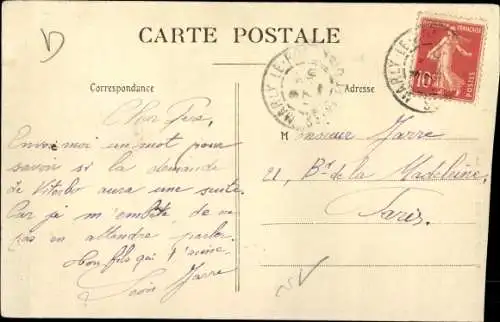 CARTE POSTALE
Correspondance
Adresse
MARLY LE-ROI
MARLY LE-
10
POSTES
Cher Père,
Envoi moi un mot pour
savoir si la demande
de Viterbo aura une suite.
Car je m'embête de ne
pas en attendre parler.
Ton fils qui t'aime
Jarre
Monsieur Jarre
21, Bd de la Madeleine
Paris.